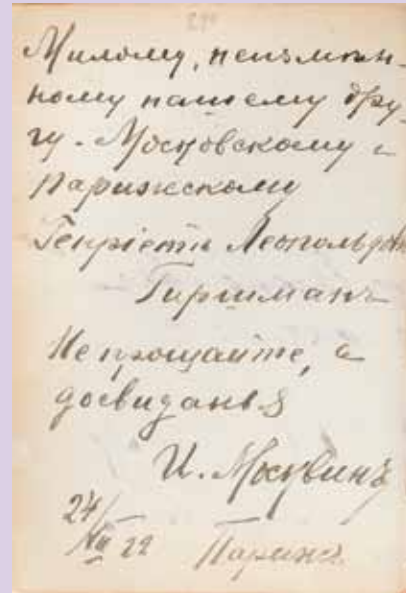 Милому, неизмѣн-
ному нашему дру-
гу. Московскому и
Парижскому
Генріеттѣ Леопольдовнѣ
Гиршманъ
Не прощайте, а
досвиданья
И. Москвинъ
24/XII 22 Парижъ